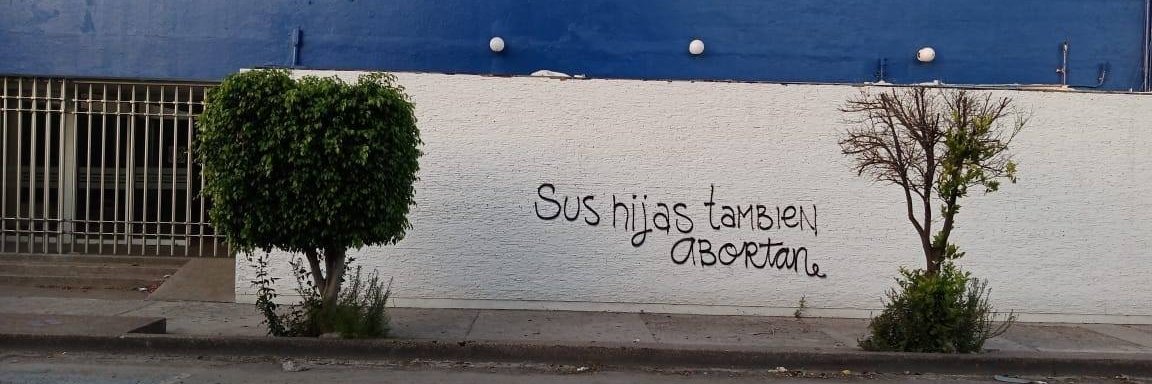 Sus hijas tambien
abortan